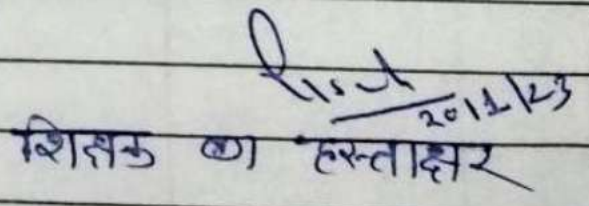 20/1/23
शिक्षक का हस्ताक्षर